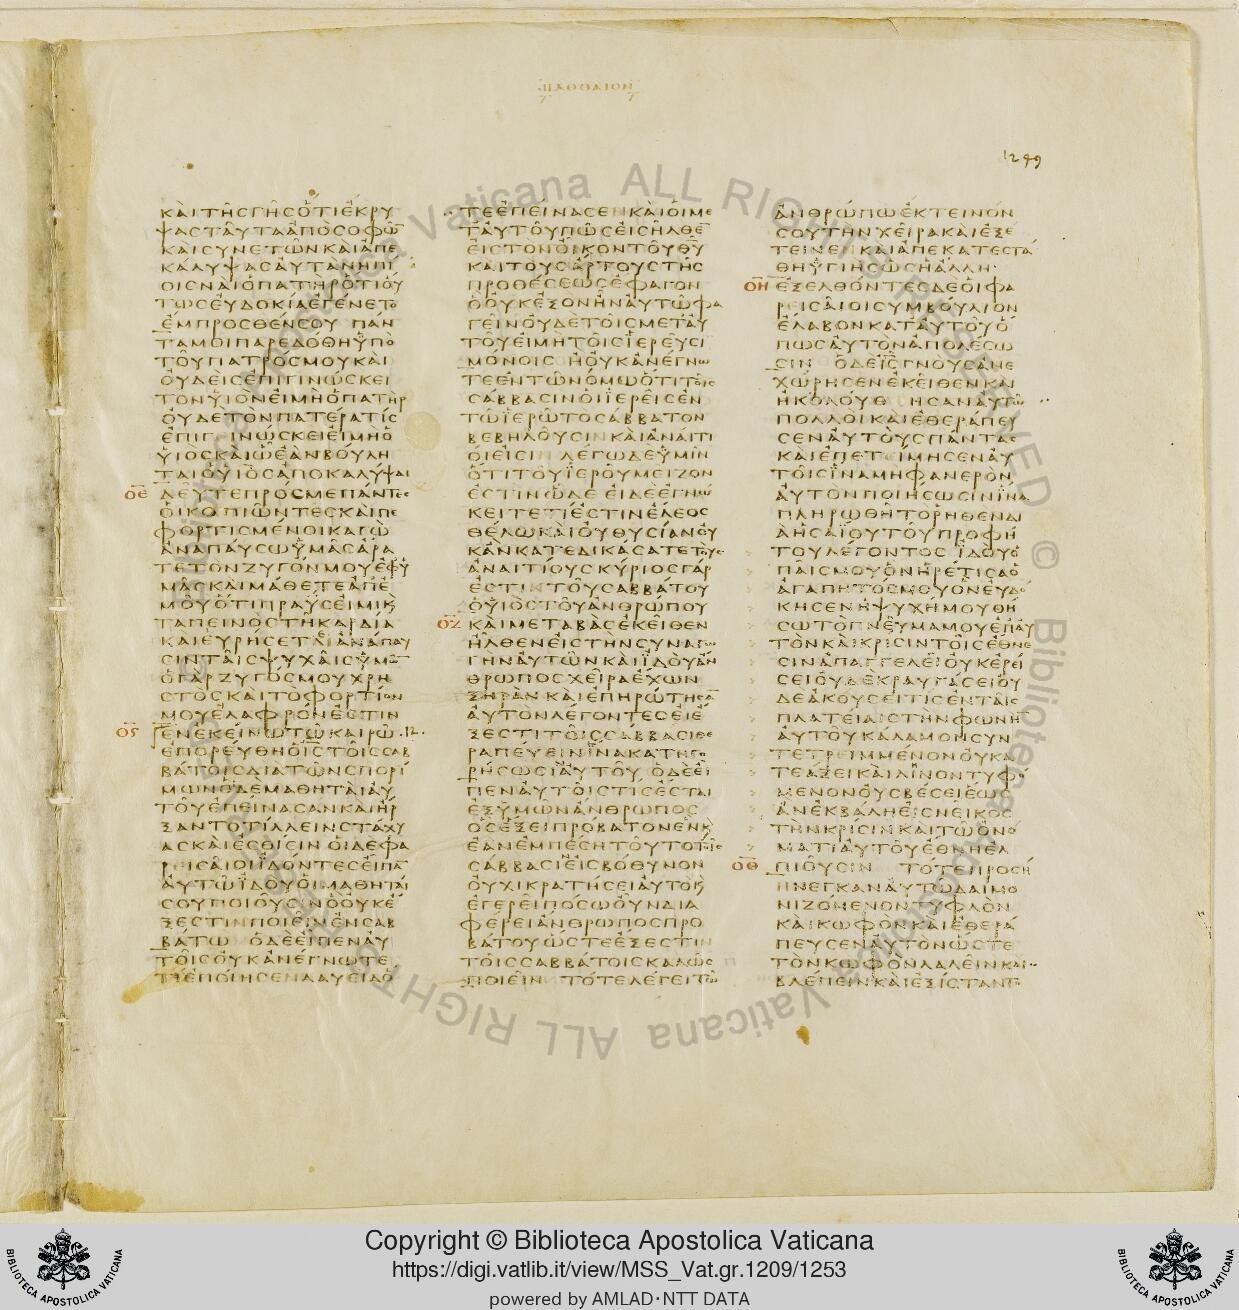 1244
ΚΑΙΤΗϹΓΗϹΟΤΙΕΚΡΥ
ΨΑϹΤΑΥΤΑΑΠΟϹΟΦΩ
ΚΑΙϹΥΝΕΤΩΝΚΑΙΑΠΕ
ΚΑΛΥΨΑϹΑΥΤΑΝΗΠΙ
ΟΙϹΝΑΙΟΠΑΤΗΡΟΤΙΟΥ
ΤΩϹΕΥΔΟΚΙΑΕΓΕΝΕΤΟ
ΕΜΠΡΟϹΘΕΝϹΟΥ ΠΑΝ
ΤΑΜΟΙΠΑΡΕΔΟΘΗΥΠΟ
ΤΟΥΠΑΤΡΟϹΜΟΥΚΑΙ
ΟΥΔΕΙϹΕΠΙΓΙΝΩϹΚΕΙ
ΤΟΝΥΙΟΝΕΙΜΗΟΠΑΤΗΡ
ΟΥΔΕΤΟΝΠΑΤΕΡΑΤΙϹ
ΕΠΙΓΙΝΩϹΚΕΙΕΙΜΗΟ
ΥΙΟϹΚΑΙΩΕΑΝΒΟΥΛΗ
ΤΑΙΟΥΙΟϹΑΠΟΚΑΛΥΨΑΙ
ΟΕ ΔΕΥΤΕΠΡΟϹΜΕΠΑΝΤΕϹ
ΟΙΚΟΠΙΩΝΤΕϹΚΑΙΠΕ
ΦΟΡΤΙϹΜΕΝΟΙΚΑΓΩ
ΑΝΑΠΑΥϹΩΥΜΑϹΑΡΑ
ΤΕΤΟΝΖΥΓΟΝΜΟΥΕΦΥ
ΜΑϹΚΑΙΜΑΘΕΤΕΑΠΕ
ΜΟΥΟΤΙΠΡΑΥϹΕΙΜΙΚ
ΤΑΠΕΙΝΟϹΤΗΚΑΡΔΙΑ
ΚΑΙΕΥΡΗϹΕΤΑΙΑΝΑΠΑΥ
ϹΙΝΤΑΙϹΨΥΧΑΙϹΥΜΩ
ΟΓΑΡΖΥΓΟϹΜΟΥΧΡΗ
ϹΤΟϹΚΑΙΤΟΦΟΡΤΙΟΝ
ΜΟΥΕΛΑΦΡΟΝΕϹΤΙΝ
ΟϚ ΕΝΕΚΕΙΝΩΤΩΚΑΙΡΩ .12.
ΕΠΟΡΕΥΘΗΟΙϹΤΟΙϹϹΑΒ
ΒΑΤΟΙϹΔΙΑΤΩΝϹΠΟΡΙ
ΜΩΝΟΙΔΕΜΑΘΗΤΑΙΑΥ
ΤΟΥΕΠΕΙΝΑϹΑΝΚΑΙΗΡ
ΞΑΝΤΟΤΙΛΛΕΙΝϹΤΑΧΥ
ΑϹΚΑΙΕϹΘΙΕΙΝ ΟΙΔΕΦΑ
ΡΕΙϹΑΙΟΙΙΔΟΝΤΕϹΕΙΠΑ
ΑΥΤΩΙΔΟΥΟΙΜΑΘΗΤΑΙ
ϹΟΥΠΟΙΟΥϹΙΝΟΟΥΚΕ
ΞΕϹΤΙΝΠΟΙΕΙΝΕΝϹΑΒ
ΒΑΤΩ ΟΔΕΕΙΠΕΝΑΥ
ΤΟΙϹΟΥΚΑΝΕΓΝΩΤΕ
ΤΙΕΠΟΙΗϹΕΝΔΑΥΕΙΔΟ
ΤΕΕΠΕΙΝΑϹΕΝΚΑΙΟΙΜΕ
ΤΑΥΤΟΥΠΩϹΕΙϹΗΛΘΕ
ΕΙϹΤΟΝΟΙΚΟΝΤΟΥΘΥ
ΚΑΙΤΟΥϹΑΡΤΟΥϹΤΗϹ
ΠΡΟΘΕϹΕΩϹΕΦΑΓΟΝ
ΟΟΥΚΕΞΟΝΗΝΑΥΤΩΦΑ
ΓΕΙΝΟΥΔΕΤΟΙϹΜΕΤΑΥ
ΤΟΥΕΙΜΗΤΟΙϹΙΕΡΕΥϹΙ
ΜΟΝΟΙϹ ΗΟΥΚΑΝΕΓΝΩ
ΤΕΕΝΤΩΝΟΜΩΟΤΙΤΟΙϹ
ϹΑΒΒΑϹΙΝΟΙΙΕΡΕΙϹΕΝ
ΤΩΙΕΡΩΤΟϹΑΒΒΑΤΟΝ
ΒΕΒΗΛΟΥϹΙΝΚΑΙΑΝΑΙΤΙ
ΟΙΕΙϹΙΝ ΛΕΓΩΔΕΥΜΙΝ
ΟΤΙΤΟΥΙΕΡΟΥΜΕΙΖΟΝ
ΕϹΤΙΝΩΔΕ ΕΙΔΕΕΓΝΩ
ΚΕΙΤΕΤΙΕϹΤΙΝΕΛΕΟϹ
ΘΕΛΩΚΑΙΟΥΘΥϹΙΑΝΟΥ
ΚΑΝΚΑΤΕΔΙΚΑϹΑΤΕΤΟΥϹ
ΑΝΑΙΤΙΟΥϹΚΥΡΙΟϹΓΑΡ
ΕϹΤΙΝΤΟΥϹΑΒΒΑΤΟΥ
ΟΥΙΟϹΤΟΥΑΝΘΡΩΠΟΥ
ΟΖ ΚΑΙΜΕΤΑΒΑϹΕΚΕΙΘΕΝ
ΗΛΘΕΝΕΙϹΤΗΝϹΥΝΑΓΩ
ΓΗΝΑΥΤΩΝΚΑΙΙΔΟΥΑΝ
ΘΡΩΠΟϹΧΕΙΡΑΕΧΩΝ
ΞΗΡΑΝΚΑΙΕΠΗΡΩΤΗϹΑ
ΑΥΤΟΝΛΕΓΟΝΤΕϹΕΙΕ
ΞΕϹΤΙΤΟΙϹϹΑΒΒΑϹΙΘΕ
ΡΑΠΕΥΕΙΝΙΝΑΚΑΤΗΓΟ
ΡΗϹΩϹΙΑΥΤΟΥ ΟΔΕΕΙ
ΠΕΝΑΥΤΟΙϹΤΙϹΕϹΤΑΙ
ΕΞΥΜΩΝΑΝΘΡΩΠΟϹ
ΟϹΕΞΕΙΠΡΟΒΑΤΟΝΕΝΚ
ΕΑΝΕΜΠΕϹΗΤΟΥΤΟΤΟΙϹ
ϹΑΒΒΑϹΙΕΙϹΒΟΘΥΝΟΝ
ΟΥΧΙΚΡΑΤΗϹΕΙΑΥΤΟΚ
ΕΓΕΡΕΙΠΟϹΩΟΥΝΔΙΑ
ΦΕΡΕΙΑΝΘΡΩΠΟϹΠΡΟ
ΒΑΤΟΥΩϹΤΕΕΞΕϹΤΙΝ
ΤΟΙϹϹΑΒΒΑΤΟΙϹΚΑΛΩϹ
ΠΟΙΕΙΝ ΤΟΤΕΛΕΓΕΙΤΩ
ΑΝΘΡΩΠΩΕΚΤΕΙΝΟΝ
ϹΟΥΤΗΝΧΕΙΡΑΚΑΙΕΞΕ
ΤΕΙΝΕΝΚΑΙΑΠΕΚΑΤΕϹΤΑ
ΘΗΥΓΙΗϹΩϹΗΑΛΛΗ
ΟΗ ΕΞΕΛΘΟΝΤΕϹΔΕΟΙΦΑ
ΡΕΙϹΑΙΟΙϹΥΜΒΟΥΛΙΟΝ
ΕΛΑΒΟΝΚΑΤΑΥΤΟΥΟ
ΠΩϹΑΥΤΟΝΑΠΟΛΕϹΩ
ϹΙΝ ΟΔΕΙϹΓΝΟΥϹΑΝΕ
ΧΩΡΗϹΕΝΕΚΕΙΘΕΝΚΑΙ
ΗΚΟΛΟΥΘΗϹΑΝΑΥΤΩ
ΠΟΛΛΟΙΚΑΙΕΘΕΡΑΠΕΥ
ϹΕΝΑΥΤΟΥϹΠΑΝΤΑϹ
ΚΑΙΕΠΕΤΕΙΜΗϹΕΝΑΥ
ΤΟΙϹΙΝΑΜΗΦΑΝΕΡΟΝ
ΑΥΤΟΝΠΟΙΗϹΩϹΙΝΙΝΑ
ΠΛΗΡΩΘΗΤΟΡΗΘΕΝΔΙ
ΑΗϹΑΙΟΥΤΟΥΠΡΟΦΗ
ΤΟΥΛΕΓΟΝΤΟϹ ΙΔΟΥΟ
ΠΑΙϹΜΟΥΟΝΗΡΕΤΙϹΑΟ
ΑΓΑΠΗΤΟϹΜΟΥΟΝΕΥΔΟ
ΚΗϹΕΝΗΨΥΧΗΜΟΥΘΗ
ϹΩΤΟΠΝΕΥΜΑΜΟΥΕΠΑΥ
ΤΟΝΚΑΙΚΡΙϹΙΝΤΟΙϹΕΘΝΕ
ϹΙΝΑΠΑΓΓΕΛΕΙΟΥΚΕΡΕΙ
ϹΕΙΟΥΔΕΚΡΑΥΓΑϹΕΙΟΥ
ΔΕΑΚΟΥϹΕΙΤΙϹΕΝΤΑΙϹ
ΠΛΑΤΕΙΑΙϹΤΗΝΦΩΝΗ
ΑΥΤΟΥΚΑΛΑΜΟΝϹΥΝ
ΤΕΤΡΕΙΜΜΕΝΟΝΟΥΚΑ
ΤΕΑΞΕΙΚΑΙΛΙΝΟΝΤΥΦΟ
ΜΕΝΟΝΟΥϹΒΕϹΕΙΕΩϹ
ΑΝΕΚΒΑΛΗΕΙϹΝΕΙΚΟϹ
ΤΗΝΚΡΙϹΙΝΚΑΙΤΩΟΝΟ
ΜΑΤΙΑΥΤΟΥΕΘΝΗΕΛ
ΟΘ ΠΙΟΥϹΙΝ ΤΟΤΕΠΡΟϹΗ
ΝΕΓΚΑΝΑΥΤΩΔΑΙΜΟ
ΝΙΖΟΜΕΝΟΝΤΥΦΛΟΝ
ΚΑΙΚΩΦΟΝΚΑΙΕΘΕΡΑ
ΠΕΥϹΕΝΑΥΤΟΝΩϹΤΕ
ΤΟΝΚΩΦΟΝΛΑΛΕΙΝΚΑΙ
ΒΛΕΠΕΙΝΚΑΙΕΞΙϹΤΑΝΤΟ
Copyright © Biblioteca Apostolica Vaticana
https://digi.vatlib.it/view/MSS_Vat.gr.1209/1253
powered by AMLAD·NTT DATA